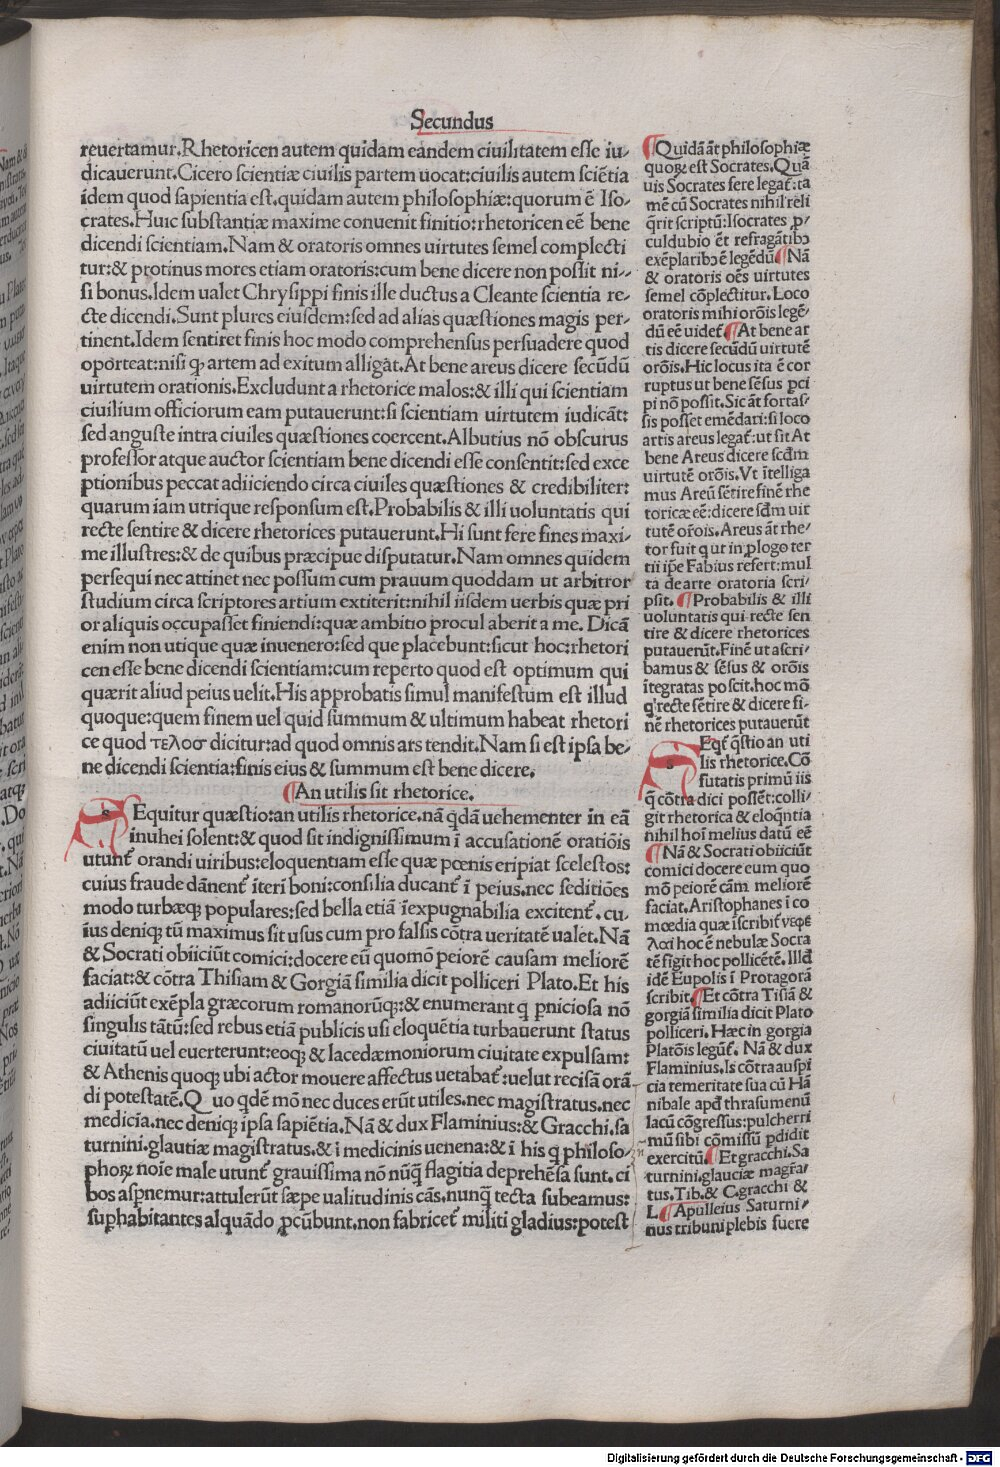 Secundus
reuertamur.Rhetoricen autem quidam eandem ciuilitatem esse iu-
dicauerunt.Cicero scientiæ ciuilis partem uocat:ciuilis autem sciētia
idem quod sapientia est.quidam autem philosophiæ:quorum ē Iso-
crates.Huic substantiæ maxime conuenit finitio:rhetoricen eē bene
dicendi scientiam.Nam & oratoris omnes uirtutes semel complecti
tur:& protinus mores etiam oratoris:cum bene dicere non possit ni-
si bonus.Idem ualet Chrysippi finis ille ductus a Cleante scientia re-
cte dicendi.Sunt plures eiusdem:sed ad alias quæstiones magis per-
tinent.Idem sentiret finis hoc modo comprehensus persuadere quod
oporteat:nisi ꝙ artem ad exitum alligāt.At bene areus dicere secūdū
uirtutem orationis.Excludunt a rhetorice malos:& illi qui scientiam
ciuilium officiorum eam putauerunt:si scientiam uirtutem iudicāt:
sed anguste intra ciuiles quæstiones coercent.Albutius nō obscurus
professor atque auctor scientiam bene dicendi esse consentit:sed exce
ptionibus peccat adiiciendo circa ciuiles quæstiones & credibiliter:
quarum iam utrique responsum est.Probabilis & illi uoluntatis qui
recte sentire & dicere rhetorices putauerunt.Hi sunt fere fines maxi-
me illustres:& de quibus præcipue disputatur.Nam omnes quidem
persequi nec attinet nec possum cum prauum quoddam ut arbitror
studium circa scriptores artium extiterit:nihil iisdem uerbis quæ pri
or aliquis occupasset finiendi:quæ ambitio procul aberit a me. Dicā
enim non utique quæ inuenero:sed que placebunt:sicut hoc:rhetori
cen esse bene dicendi scientiam:cum reperto quod est optimum qui
quærit aliud peius uelit.His approbatis simul manifestum est illud
quoque:quem finem uel quid summum & ultimum habeat rhetori
ce quod τελοσ dicitur:ad quod omnis ars tendit.Nam si est ipsa be-
ne dicendi scientia:finis eius & summum est bene dicere.
¶An utilis sit rhetorice.
SEquitur quæstio:an utilis rhetorice.nā qdā uehementer in eā
inuhei solent:& quod sit indignissimum ī accusationē oratiōis
utunt᷑ orandi uiribus:eloquentiam esse quæ pœnis eripiat scelestos:
cuius fraude dānent᷑ īteri boni:consilia ducant᷑ ī peius.nec seditiōes
modo turbæq; populares:sed bella etiā īexpugnabilia excitent᷑.cu-
ius deniq; tū maximus sit usus cum pro falsis cōtra ueritatē ualet.Nā
& Socrati obiiciūt comici:docere eū quomō peiorē causam meliorē
faciat:& cōtra Thisiam & Gorgiā similia dicit polliceri Plato.Et his
adiiciūt exēpla græcorum romanorūq;:& enumerant q pniciosa nō
singulis tātū:sed rebus etiā publicis usi eloquētia turbauerunt status
ciuitatū uel euerterunt:eoq; & lacedæmoniorum ciuitate expulsam:
& Athenis quoq; ubi actor mouere affectus uetabat᷑:uelut recisā orā
di potestatē.Quo qdē mō nec duces erūt utiles.nec magistratus.nec
medicia.nec deniq; ipsa sapiētia.Nā & dux Flaminius:& Gracchi.sa
turnini.glautiæ magistratus.& ī medicinis uenena:& ī his q philoso-
phoꝝ noie male utunt᷑ grauissima nō nūq̄ flagitia deprehēsa sunt.ci
bos aspnemur:attulerūt sæpe ualitudinis cās.nunq̄ tecta subeamus:
sup habitantes alquādo ꝓcūbunt.non fabricet᷑ militi gladius:potest
¶Quidā āt philosophiæ
quoꝝ est Socrates.Quā
uis Socrates fere legat᷑:ta
mē cū Socrates nihil reli
q̄rit scriptū:Isocrates ꝓ-
culdubio ēt refragātibꝫ
exēplaribꝫ ē legēdū¶Nā
& oratoris oēs uirtutes
semel cōplectitur.Loco
oratoris mihi orōis legē-
dū eē uidet᷑.¶At bene ar
tis dicere secūdū uirtutē
orōis.Hic locus ita ē cor
ruptus ut bene sēsus pci
pi nō possit.Sic āt fortas-
sis posset emēdari:si loco
artis areus legat᷑:ut sit At
bene Areus dicere scdm
uirtutē orōis.Vt ītelliga
mus Areū sētire finē rhe
toricæ eē:dicere sdm uir
tutē orōis.Areus āt rhe-
tor fuit q ut in plogo ter
tii ipse Fabius refert:mul
ta de arte oratoria scri-
psit.¶Probabilis & illi
uoluntatis qui recte sen
tire & dicere rhetorices
putauerūt.Finē ut ascri-
bamus & sēsus & orōis
ītegratas poscit.hoc mō
q recte sētire & dicere fi-
nē rhetorices putauerūt
SEqt᷑ q̄stio an uti
lis rhetorice.Cō
futatis primū iis
q̄ cōtra dici possēt:colli-
git rhetorica & eloqntia
nihil hoī melius datū eē
¶Nā & Socrati obiiciūt
comici docere eum quo
mō peiorē cām meliorē
faciat.Aristophanes ī co
mœdia quæ īscribit᷑ νεφε
λαι hoc ē nebulæ Socra
tē figit hoc pollicētē.Illd
idē Eupolis ī Protagorā
scribit.¶Et cōtra Tisiā &
gorgiā similia dicit Plato
polliceri.Hæc in gorgia
Platōis legūt᷑. Nā & dux
Flaminius.Is cōtra auspī
cia temeritate sua cū Hā
nibale apd thrasumenū
lacū cōgressus:pulcherri
mū sibi cōmissū pdidit
exercitū.¶Et gracchi.Sa
turnini.glauciæ magr̄a-
tus.Tib.& C.gracchi &
L.¶Apulleius Saturni-
nus tribuni plebis fuere
Digitalisierung gefördert durch die Deutsche Forschungsgemeinschaft - DFG